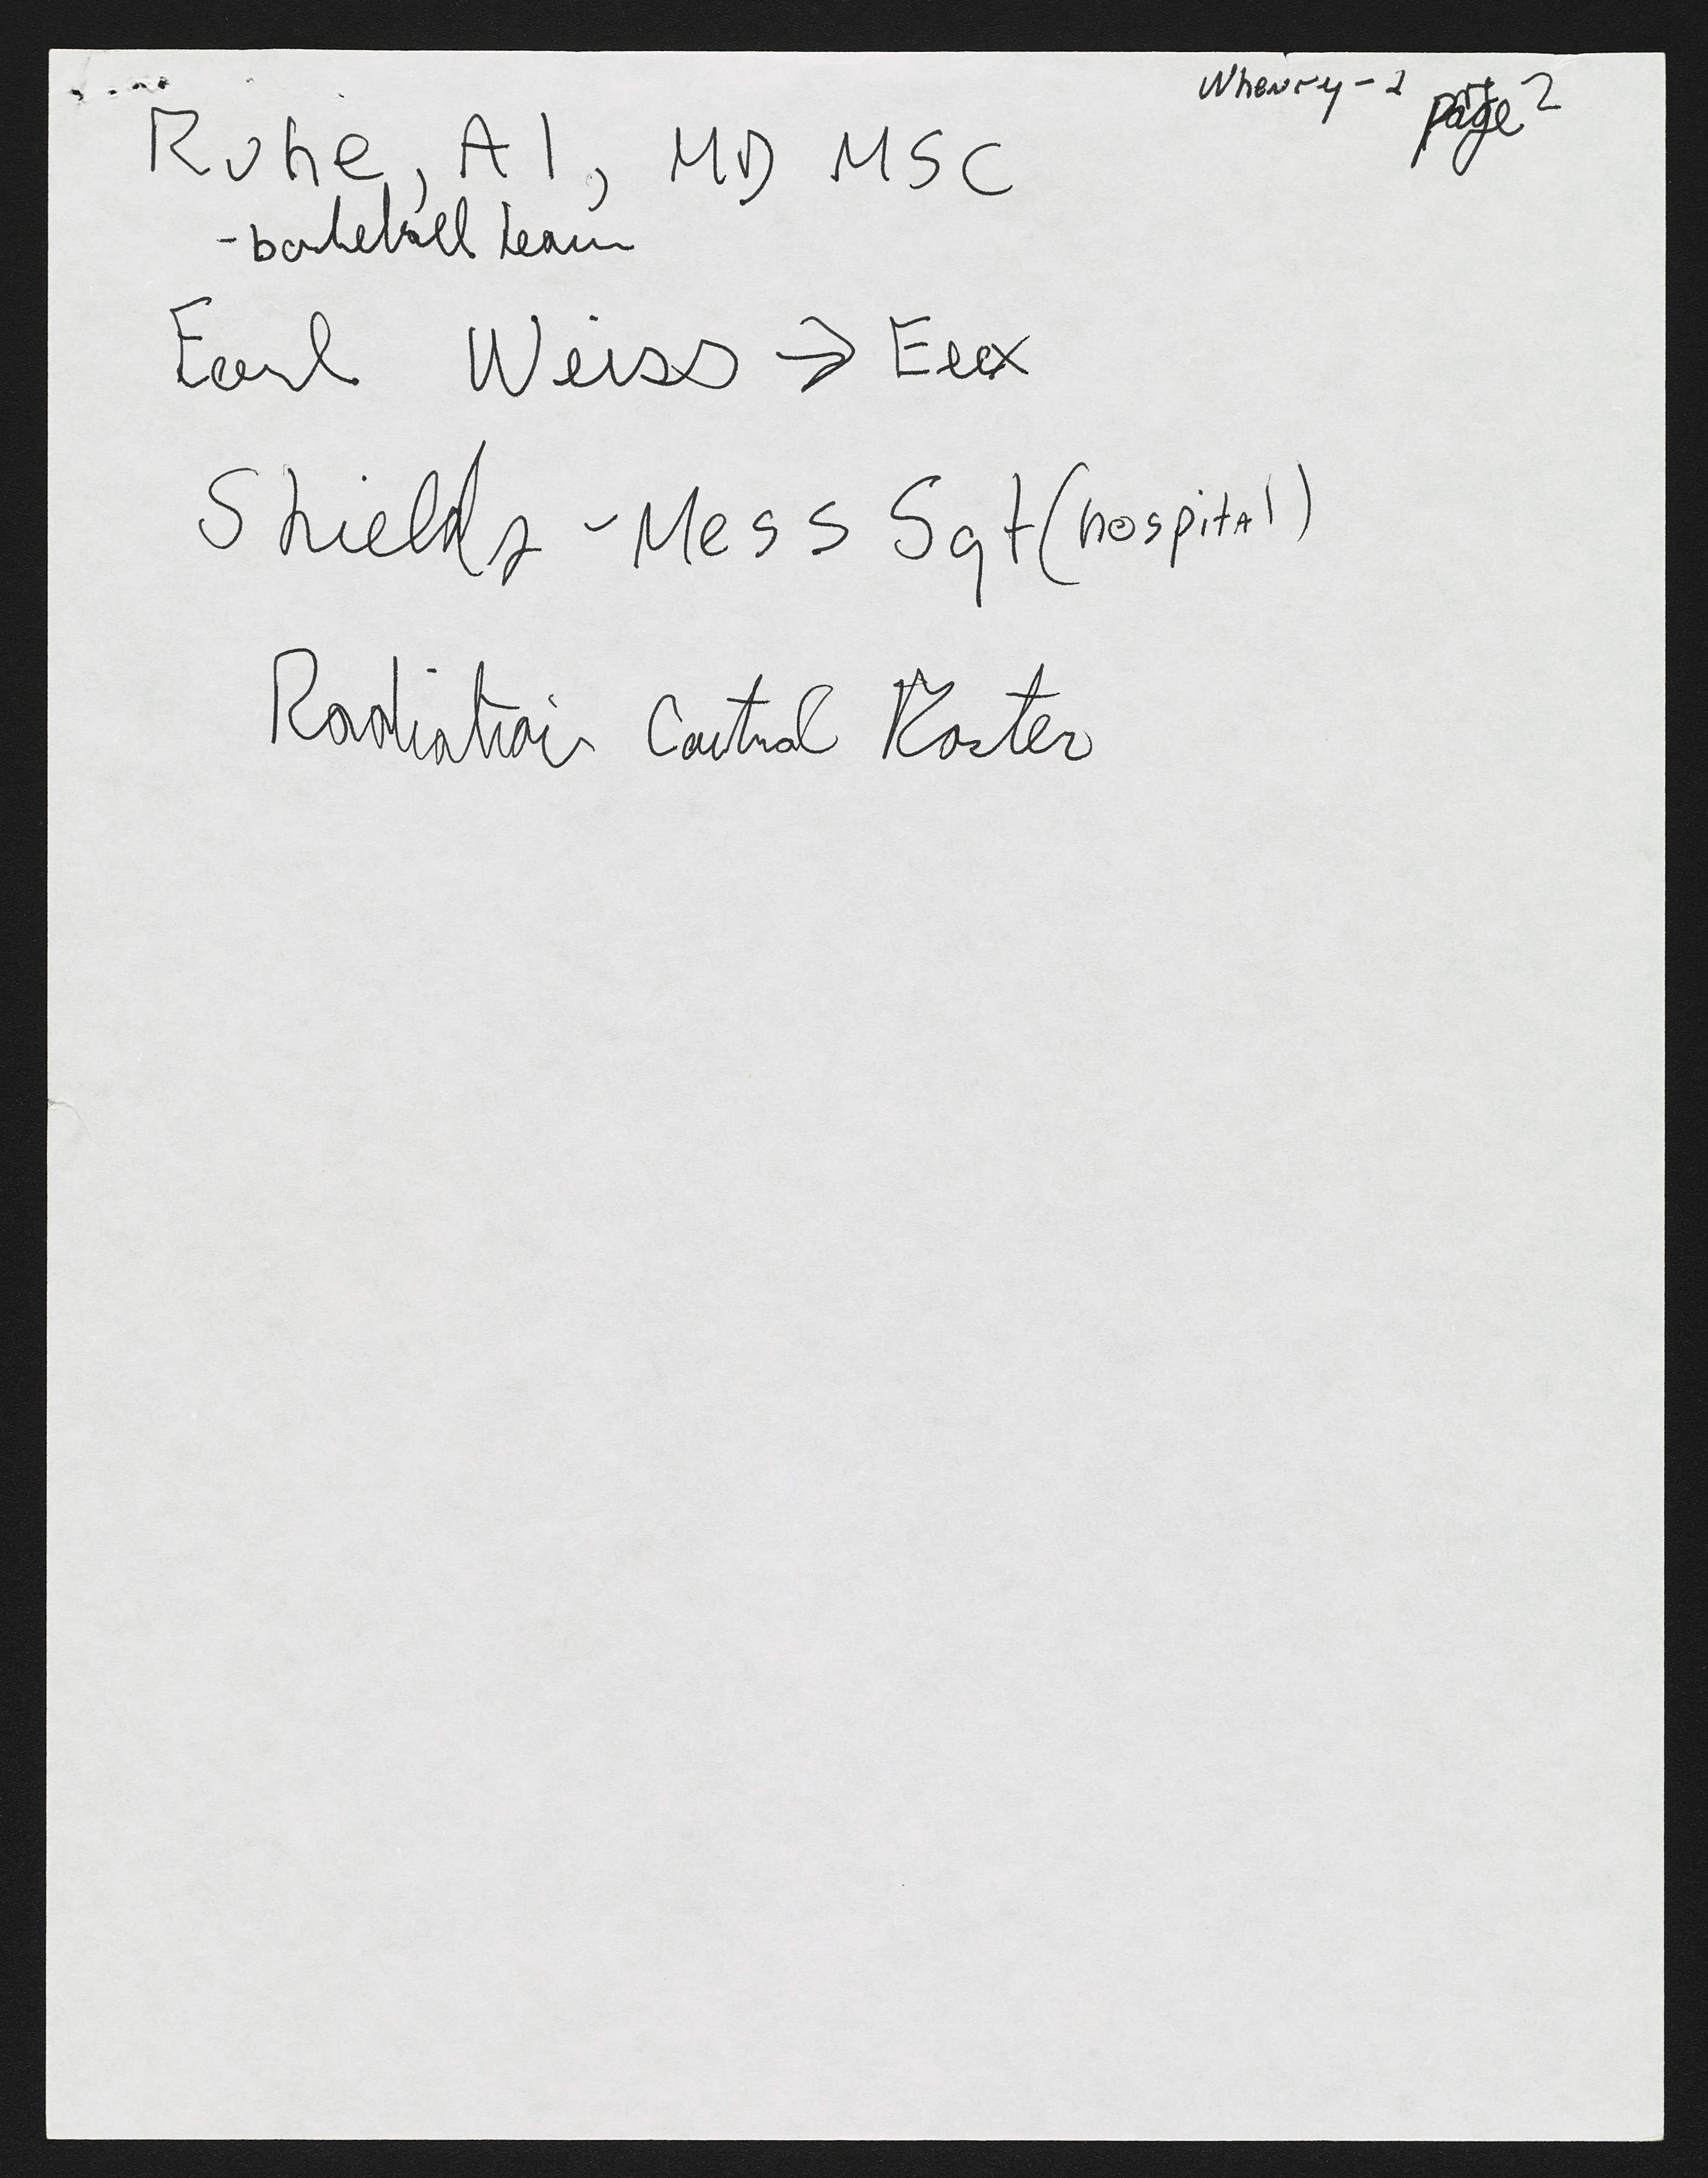 Whenry-2 page 2
Ruhe, Al, MD MSC
-basketball team
Earl Weiss →
Shields - Mess Sgt (hospital)
Radiation Control Roster